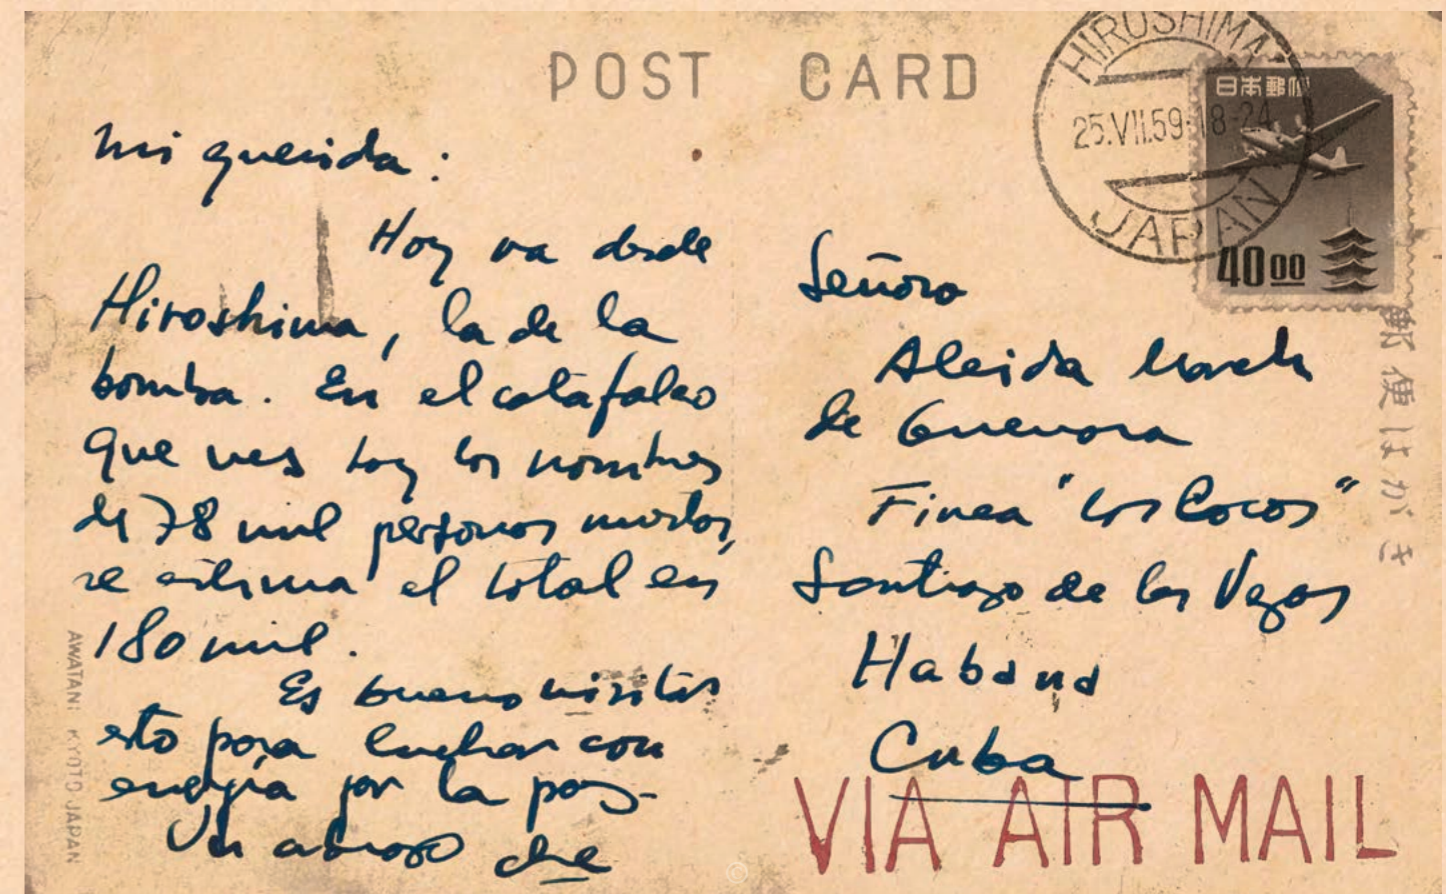 POST CARD
HIROSHIMA
25.VII.59 18-24
JAPAN
日本郵便
40 00
mi querida:
Hoy va desde
Hiroshima, la de la
bomba. En el catafalco
que ves hay los nombres
de 78 mil personas muertas,
se estima el total en
180 mil.
Es bueno visitar
esto para luchar con
energía por la paz.
Un abrazo che
Señora
Aleida March
de Guevara
Finca "Los Cocos"
Santiago de las Vegas
Habana
Cuba
VIA AIR MAIL
郵便はがき
AWATANI KYOTO JAPAN